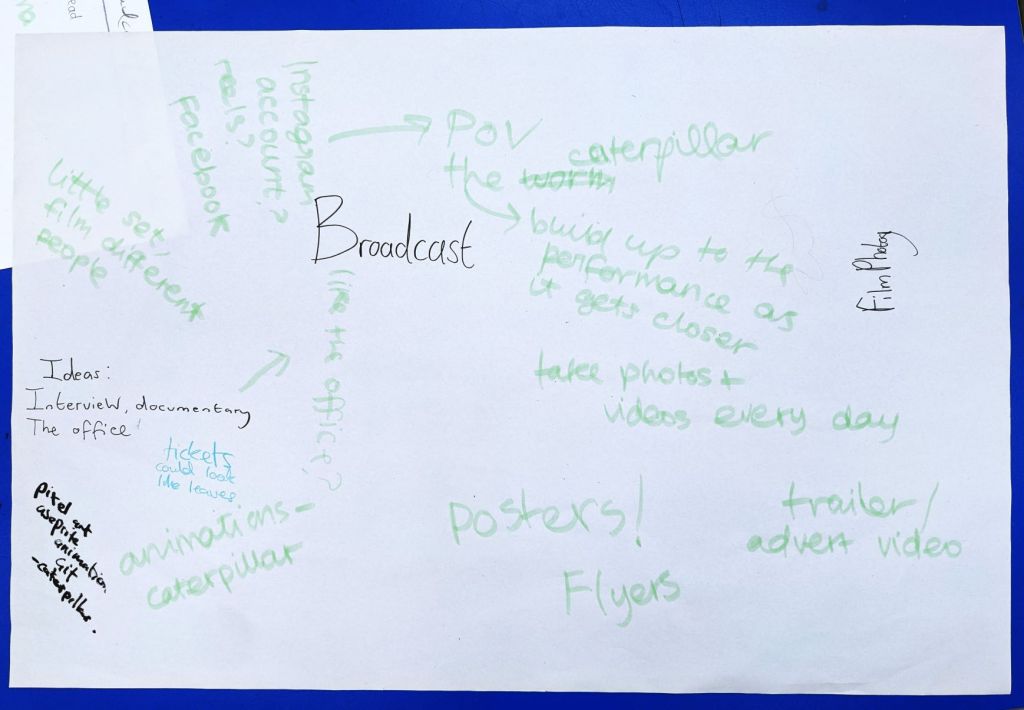 Broadcast
Instagram
account?
reels?
Facebook
POV
the worm caterpillar
build up to the
performance as
it gets closer
take photos +
videos every day
Film Photog
little set,
film different
people
like the office?
Ideas:
Interview, documentary
The office
tickets
could look
like leaves
pixel art
aseprite
animation
Git
-caterpillar.
animations-
caterpillar
posters!
Flyers
trailer/
advert video